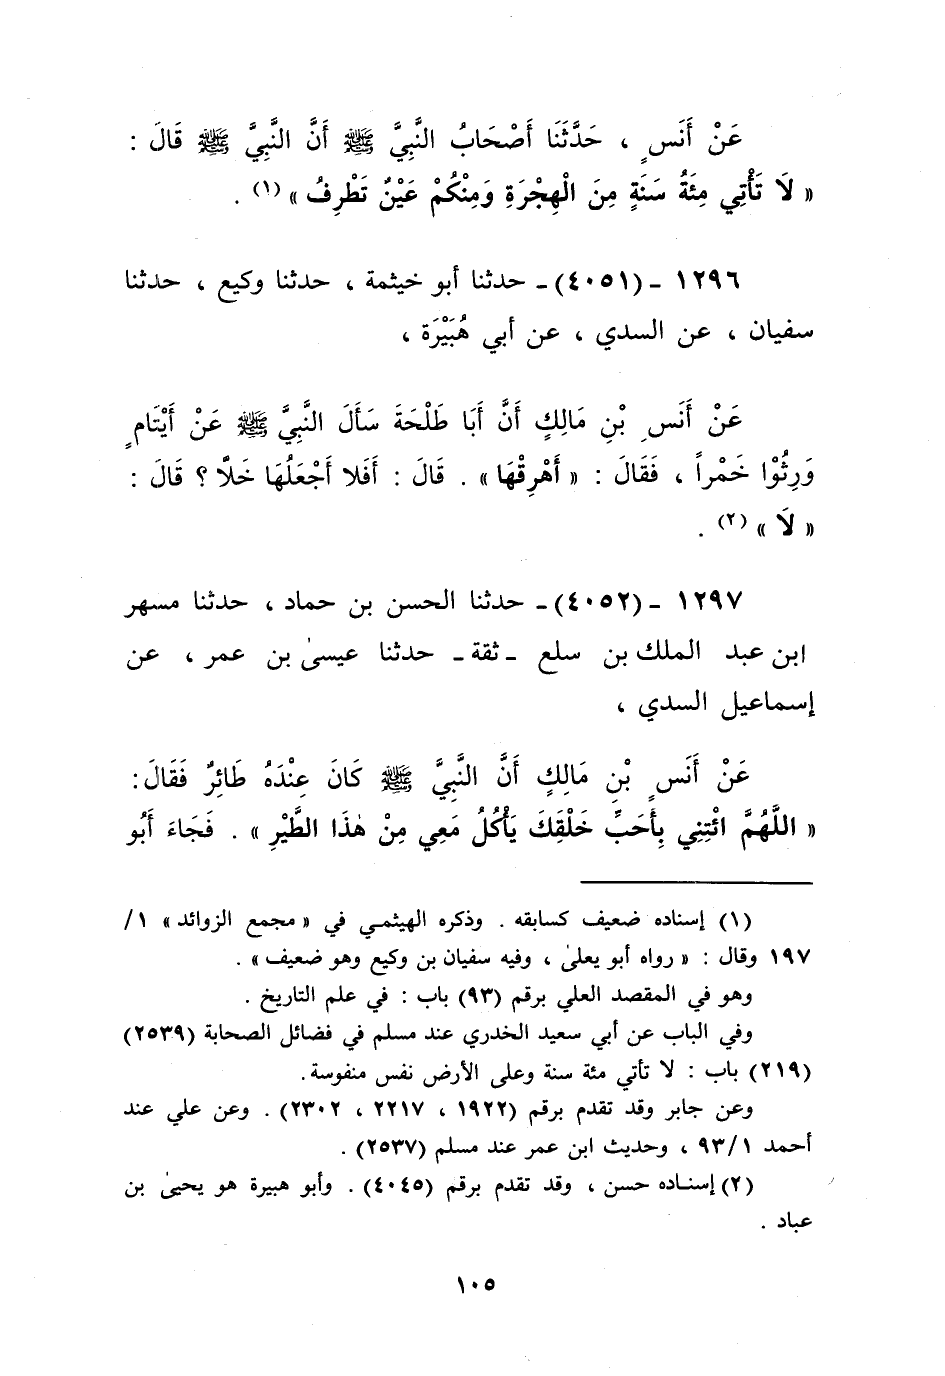 عَنْ أَنَسٍ ، حَدَّثَنَا أَصْحَابُ النَّبِيِّ ﷺ أَنَّ النَّبِيَّ ﷺ قَالَ :
« لَا تَأْتِي مِئَةُ سَنَةٍ مِنَ الْهِجْرَةِ وَمِنْكُمْ عَيْنٌ تَطْرِفُ » (١) .
١٢٩٦ - (٤٠٥١) - حدثنا أبو خيثمة ، حدثنا وكيع ، حدثنا
سفيان ، عن السدي ، عن أبي هُبَيْرَة ،
عَنْ أَنَسِ بْنِ مَالِكٍ أَنَّ أَبَا طَلْحَةَ سَأَلَ النَّبِيَّ ﷺ عَنْ أَيْتَامٍ
وَرِثُوْا خَمْراً ، فَقَالَ : « أَهْرِقْهَا » . قَالَ : أَفَلا أَجْعَلُهَا خَلًّا ؟ قَالَ :
« لَا » (٢) .
١٢٩٧ - (٤٠٥٢) - حدثنا الحسن بن حماد ، حدثنا مسهر
ابن عبد الملك بن سلع - ثقة - حدثنا عيسىٰ بن عمر ، عن
إسماعيل السدي ،
عَنْ أَنَسٍ بْنِ مَالِكٍ أَنَّ النَّبِيَّ ﷺ كَانَ عِنْدَهُ طَائِرٌ فَقَالَ :
« اللَّهُمَّ ائْتِنِي بِأَحَبِّ خَلْقِكَ يَأْكُلُ مَعِي مِنْ هٰذَا الطَّيْرِ » . فَجَاءَ أَبُو
(١) إسناده ضعيف كسابقه . وذكره الهيثمي في « مجمع الزوائد » ١/
١٩٧ وقال : « رواه أبو يعلىٰ ، وفيه سفيان بن وكيع وهو ضعيف » .
وهو في المقصد العلي برقم (٩٣) باب : في علم التاريخ .
وفي الباب عن أبي سعيد الخدري عند مسلم في فضائل الصحابة (٢٥٣٩)
(٢١٩) باب : لا تأتي مئة سنة وعلى الأرض نفس منفوسة .
وعن جابر وقد تقدم برقم (١٩٢٢ ، ٢٢١٧ ، ٢٣٠٢) . وعن علي عند
أحمد ٩٣/١ ، وحديث ابن عمر عند مسلم (٢٥٣٧) .
(٢) إسناده حسن ، وقد تقدم برقم (٤٠٤٥) . وأبو هبيرة هو يحيىٰ بن
عباد .
١٠٥